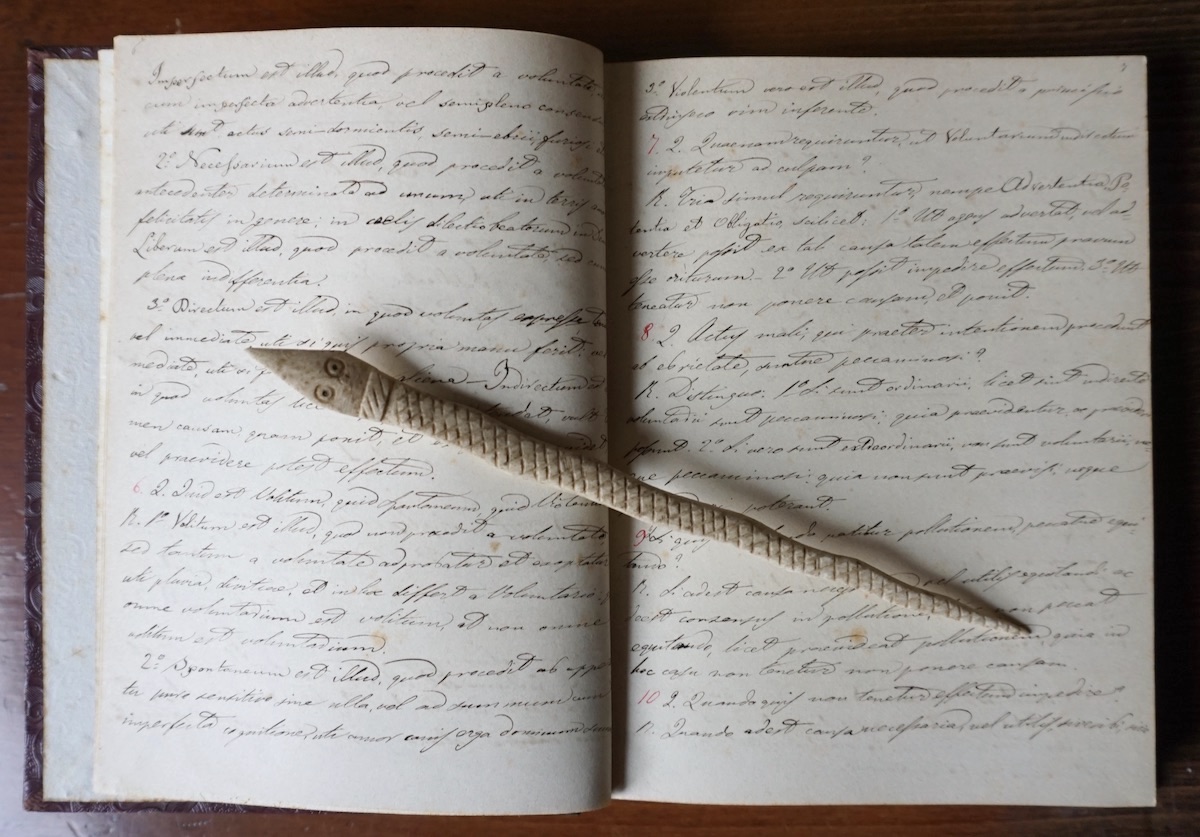 Imperfectum est illud, quod procedit a voluntate
cum imperfecta advertentia, vel semipleno consensu
uti sunt actus semi-dormientis, semi-ebrii, furiosi
2º Necessarium est illud, quod procedit a volunta
antecedenter determinata ad unum, uti in
felicitatis in genere; in actus dilectio beatorum in
Liberum est illud, quod procedit a voluntate sed cum
plena indifferentia.
3º Directum est illud, in quod voluntas expresse
vel immediate uti si quis propria manu ferit:
mediate uti si Indirectum est
in quod voluntas
men causam quam ponit, et
vel praevidere potest effectum.
6. Q. Quid est Volitum, quid spontaneum, quid Violen
R. 1º Volitum est illud, quod non procedit a voluntate
sed tantum a voluntate adprobatur et exoptatur
uti pluvia, divitiae, et in hoc differt a Voluntario:
omne voluntarium est volitum, et non omne
volitum est voluntarium.
2º Spontaneum est illud, quod procedit ab appe
tu pure sensitivo sine ulla, vel ad summum cum
imperfecta cognitione, uti amor canis erga dominum suum
3º Violentum vero est illud, quod procedit a principio
extrinseco vim inferente.
7. Q. Quaenam requiruntur, ut Voluntarium indirectum
imputetur ad culpam?
R. Tria simul requiruntur, nempe Advertentia, Po
tentia et Obligatio, scilicet: 1º Ut agens advertat, vel ad
vertere possit ex tali causa talem effectum pravum
esse oriturum_ 2º Ut possit impedire effectum. 3º Ut
teneatur non ponere causam, et ponit.
8. Q. Actus mali, qui praeter intentionem procedunt
ab ebrietate, suntne peccaminosi?
R. Distinguo: 1º si sunt ordinarii, licet sint indirecte
voluntarii sunt peccaminosi; quia praevidentur, vel praevideri
possunt. 2º Si vero sunt extraordinarii, non sunt voluntarii,
ne peccaminosi: quia non sunt praevisi, neque
poterant.
9. Q. Si quis patitur pollutionem, peccatne equi
tando?
R. Si adest causa vel utilis equitandi
deest consensus in pollutionem, non peccat
equitando, licet praevideat pollutionem quia in
hoc casu non tenetur non ponere causam.
10 Q. Quando quis non tenetur effectum impedire?
R. Quando adest causa necessaria, vel utilis,